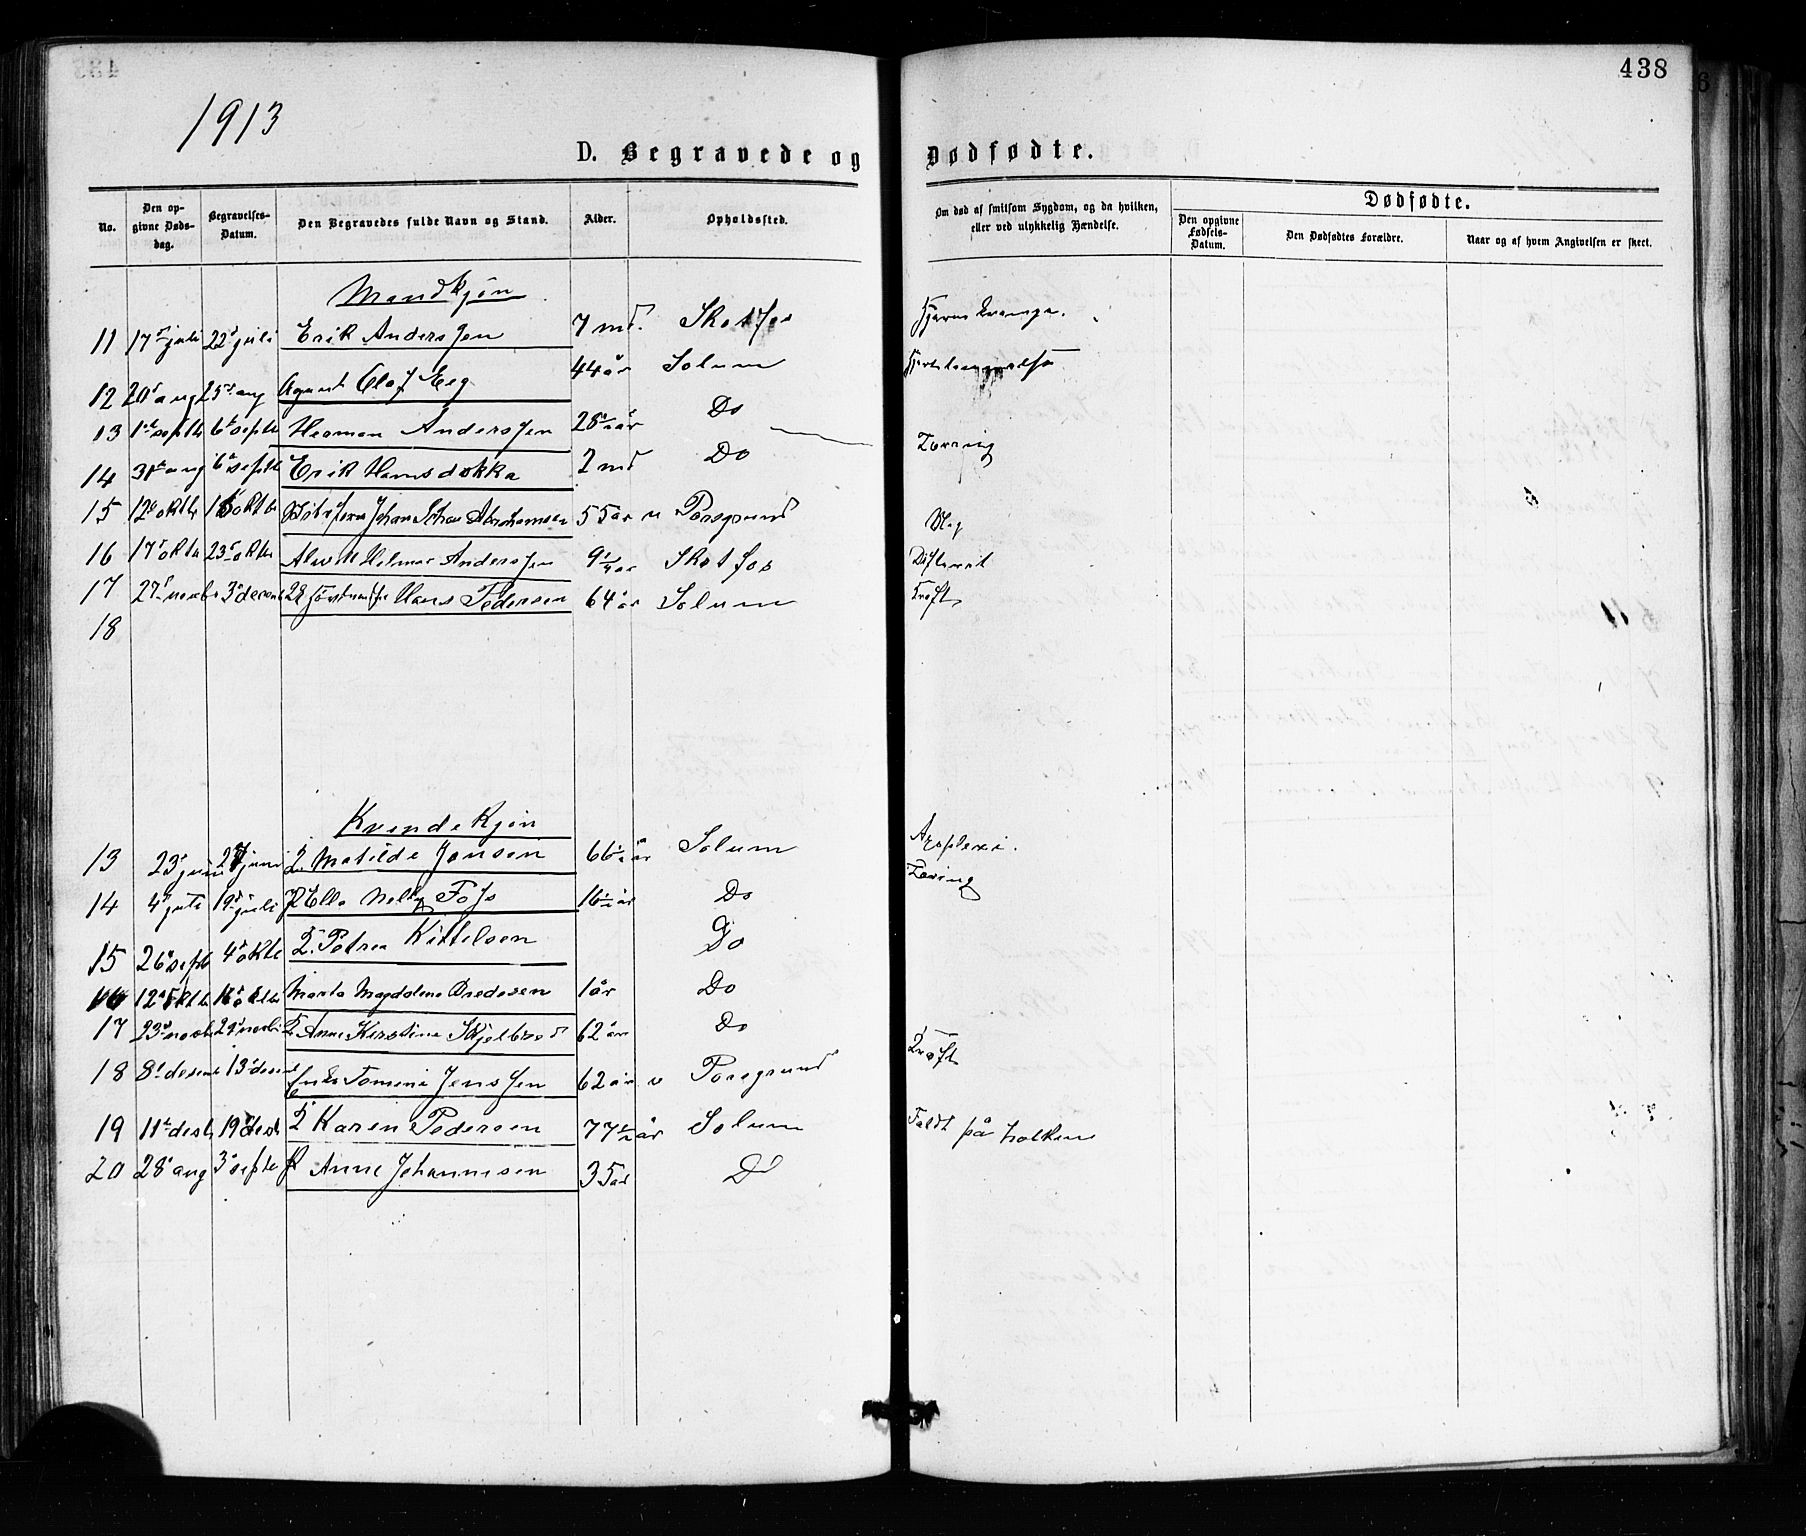 438
1913
D. Begravede og Dødfødte.
No. Den opgivne Dødsdag. Begravelses-Datum. Den Begravedes fulde Navn og Stand. Alder. Opholdssted. Om død af smitsom Sygdom, og da hvilken, eller ved ulykkelig Hændelse. Dødfødte. Den opgivne Fødsels-Datum. Den Dødfødtes Forældre. Naar og af hvem Angivelsen er skeet.
Mandkjøn
11 17 juli 22 juli Erik Anderssen 7 md. Skotfos
12 20 aug 25 aug Agent Olaf Eeg 44 år Solum
13 1 septb 6 septb Herman Anderssen 28 1/2 år Do Tæring
14 31 aug 6 septb Erik Hansdokka 2 md Do
15 12 oktb 16 oktb Johan Abrahamsen 55 år Porsgrund Slag
16 17 oktb 23 oktb Alfv Hilmar Anderssen 9 1/4 år Skotfos Difterit
17 27 novbr 3 decemb Hans Pedersen 64 år Solum Kræft
18
Kvindekjøn
13 23 juni 27 juni E. Matilde Jansen 66 1/2 år Solum Apoplexi.
14 4 juli 19 juli P Ella Nelly Fos 16 1/2 år Do Tæring
15 26 septb 4 oktb E. Petrea Kittelsen Do
16 12 oktb 16 oktb Marta Magdalena Bredesen 1 år Do
17 23 novb 29 novb E. Anne Kirstine Skjelbred 62 år Do
18 8 desemb 13 desemb Enke Tomine Jenssen 62 år Porsgrund Kræft
19 11 desb 19 desb E Karen Pedersen 77 1/2 år Solum Faldt på holken
20 28 aug 3 septb P Anne Johannesen 35 år D